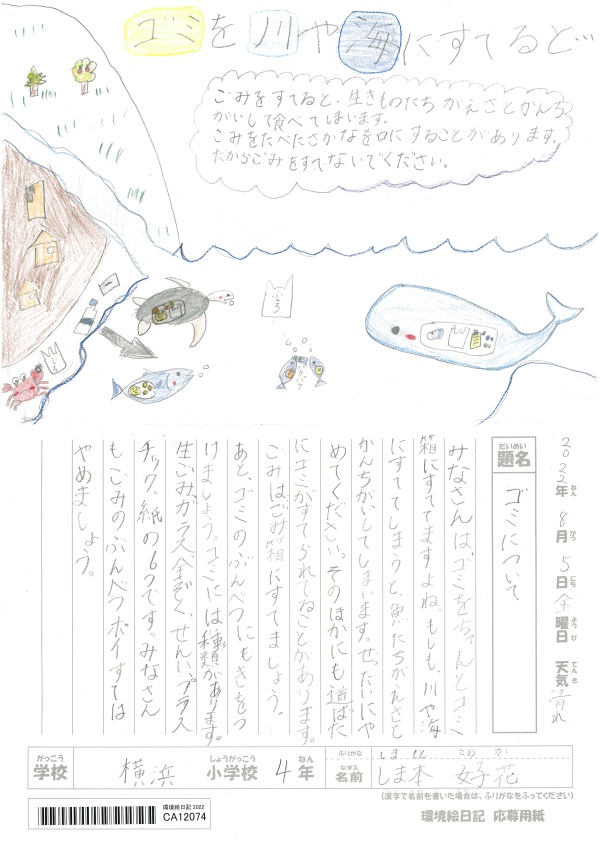 ゴミを川や海にすてると…
ごみをすてると、生きものたちがえさとかんち
がいして食べてしまいます。
ごみをたべたさかなを口にすることがあります。
だからごみをすてないでください。
ふくろ
2022年 8月 5日 金曜日 天気 晴れ
ねん がつ にち ようび てんき
だいめい
題名
ゴミについて
みなさんは、ゴミをちゃんとゴミ
箱にすててますよね。もしも、川や海
にすててしまうと、魚たちがえさと
かんちがいしてしまいます。ぜったいにや
めてください。そのほかにも道ばた
にゴミがすてられてることがあります。
ごみはごみ箱にすてましょう。
あと、ゴミのぶんべつにもきをつ
けましょう。ゴミには種類があります。
生ごみ、ガラス、金ぞく、せんい、プラス
チック、紙の6つです。みなさん
もごみのぶんべつポイすては
やめましょう。
がっこう しょうがっこう ねん ふりがな しま もと このか
学校 横浜 小学校 4年 なまえ 名前 しま本 好花
(漢字で名前を書いた場合は、ふりがなをふってください)
環境絵日記 2022
CA12074
環境絵日記 応募用紙